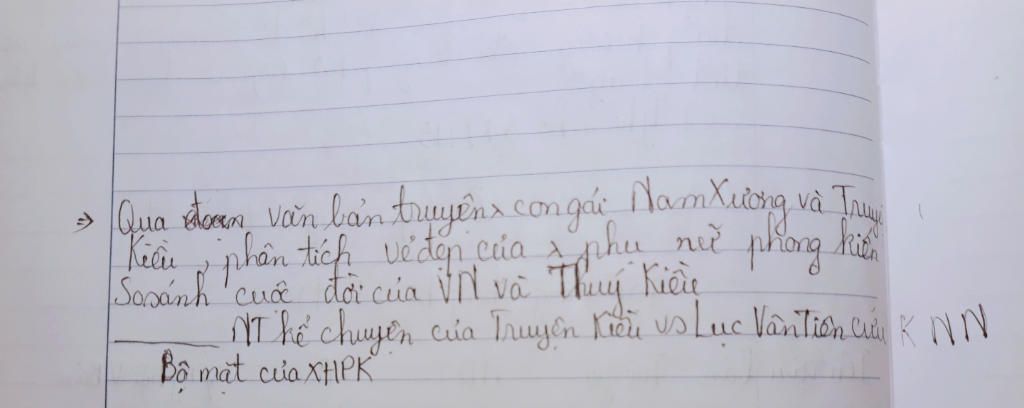 ⇒ Qua văn bản truyện x con gái Nam Xương và Truyện
Kiều, phân tích vẻ đẹp của x phụ nữ phong kiến
So sánh cuộc đời của VN và Thuý Kiều
NT kể chuyện của Truyện Kiều vs Lục Vân Tiên cứu K NN
Bộ mặt của XHPK